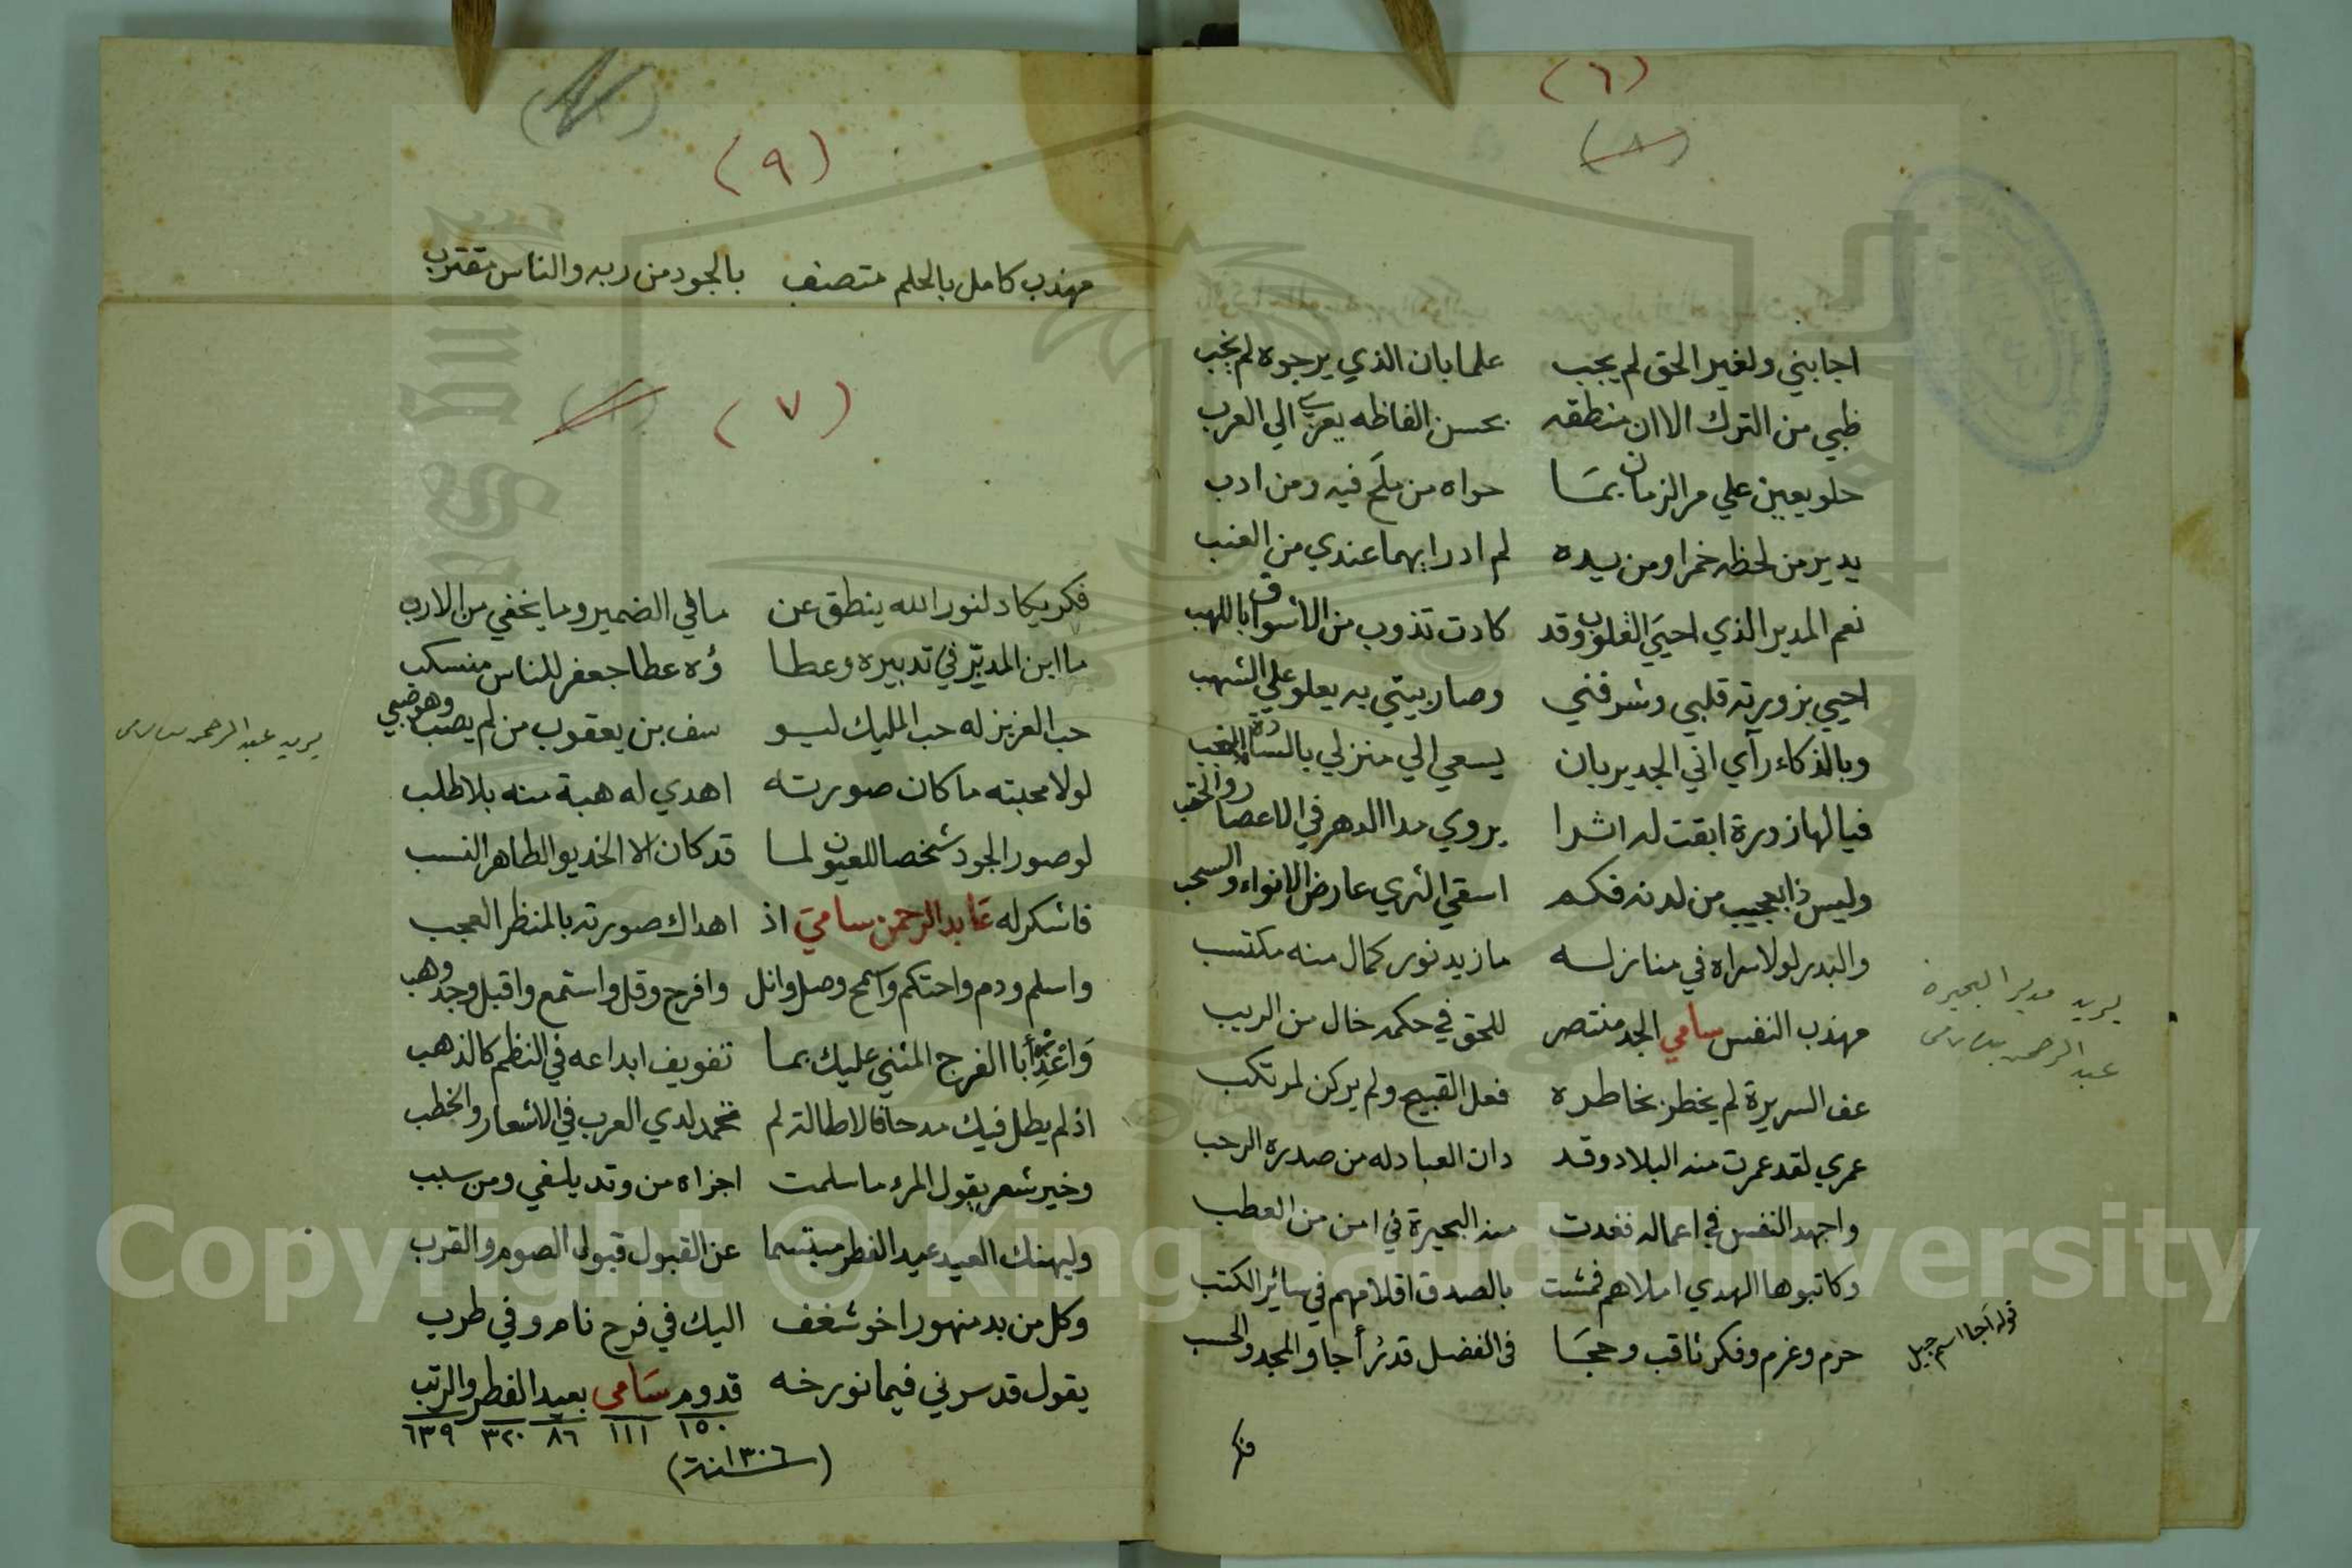 (٦)
(٨)
اجابني ولغير الحق لم يجب علما بان الذي يرجوه لم يخب
ظبي من الترك الا ان منطقه بحسن الفاظه يعزي الي العرب
حلو يعين علي مر الزمان بما حواه من ملح فيه ومن ادب
يدير من لحظه خمرا ومن يده لم ادر ايهما عندي من العنب
نعم المدير الذي احيي القلوب وقد كادت تذوب من الاشواق باللهب
احيي بزورته قلبي وشرفني وصار بيتي به يعلو علي الشهب
وبالذكاء رآي اني الجدير بان يسعي الي منزلي بالسادة النجب
فيالها زورة ابقت له اثرا يروي مدا الدهر في الاعصار والحقب
وليس ذا بعجيب من لدنه فكم اسقي الثري عارض الانواء والسحب
والبدر لولا سراه في منازله ما زيد نور كمال منه مكتسب
مهذب النفس سامي الجد منتصر للحق في حكمه خال من الريب
عف السريرة لم يخطر بخاطره فعل القبيح ولم يركن لمرتكب
عمري لقد عمرت منه البلاد وقد دان العباد له من صدره الرحب
واجهد النفس في اعماله فغدت منه البحيرة في امن من العطب
وكاتبوها الهدي املاهم فمشت بالصدق اقلامهم في سائر الكتب
حزم وعزم وفكر ثاقب وحجا في الفضل قدرُ أجا والمجد والحسب
فكر
يريد مدير البحيره
عبد الرحمن بك سامى
قوله أجا اسم جبل
(٩)
مهذب كامل بالحلم متصف بالجود من ربه والناس مقترب
(٧)
فكر يكاد لنور الله ينطق عن ما في الضمير وما يخفي من الارب
ما ابن المدبّر في تدبيره وعطا ؤه عطا جعفر للناس منسكب
حب العزيز له حب المليك ليو سف بن يعقوب من لم يصب وهو صبي
لولا محبته ما كان صورته اهدي له هبة منه بلا طلب
لو صور الجود شخصا للعيون لما قد كان الا الخديو الطاهر النسب
فاشكر له عابد الرحمن سامي اذ اهداك صورته بالمنظر العجب
واسلم ودم واحتكم واسمح وصل وانل وافرح وقل واستمع واقبل وجد وهب
وَاعْذِرْ أبا الفرج المثني عليك بما تفويف ابداعه في النظم كالذهب
اذ لم يطل فيك مدحا فالاطالة لم تحمد لدي العرب في الاشعار والخطب
وخير شعر يقول المرء ما سلمت اجزاه من وتد يلفي ومن سبب
وليهنك العيد عيد الفطر مبتسما عن القبول قبول الصوم والقرب
وكل من بدمنهور اخو شغف اليك في فرح نام وفي طرب
يقول قد سرني فيما نورخه قدوم سَامى بعيد الفطر والرتب
١٥٠ ١١١ ٨٦ ٣٢٠ ٦٣٩
(سنة ١٣٠٦)
يريد عبد الرحمن بك سامى
Copyright © King Saud University